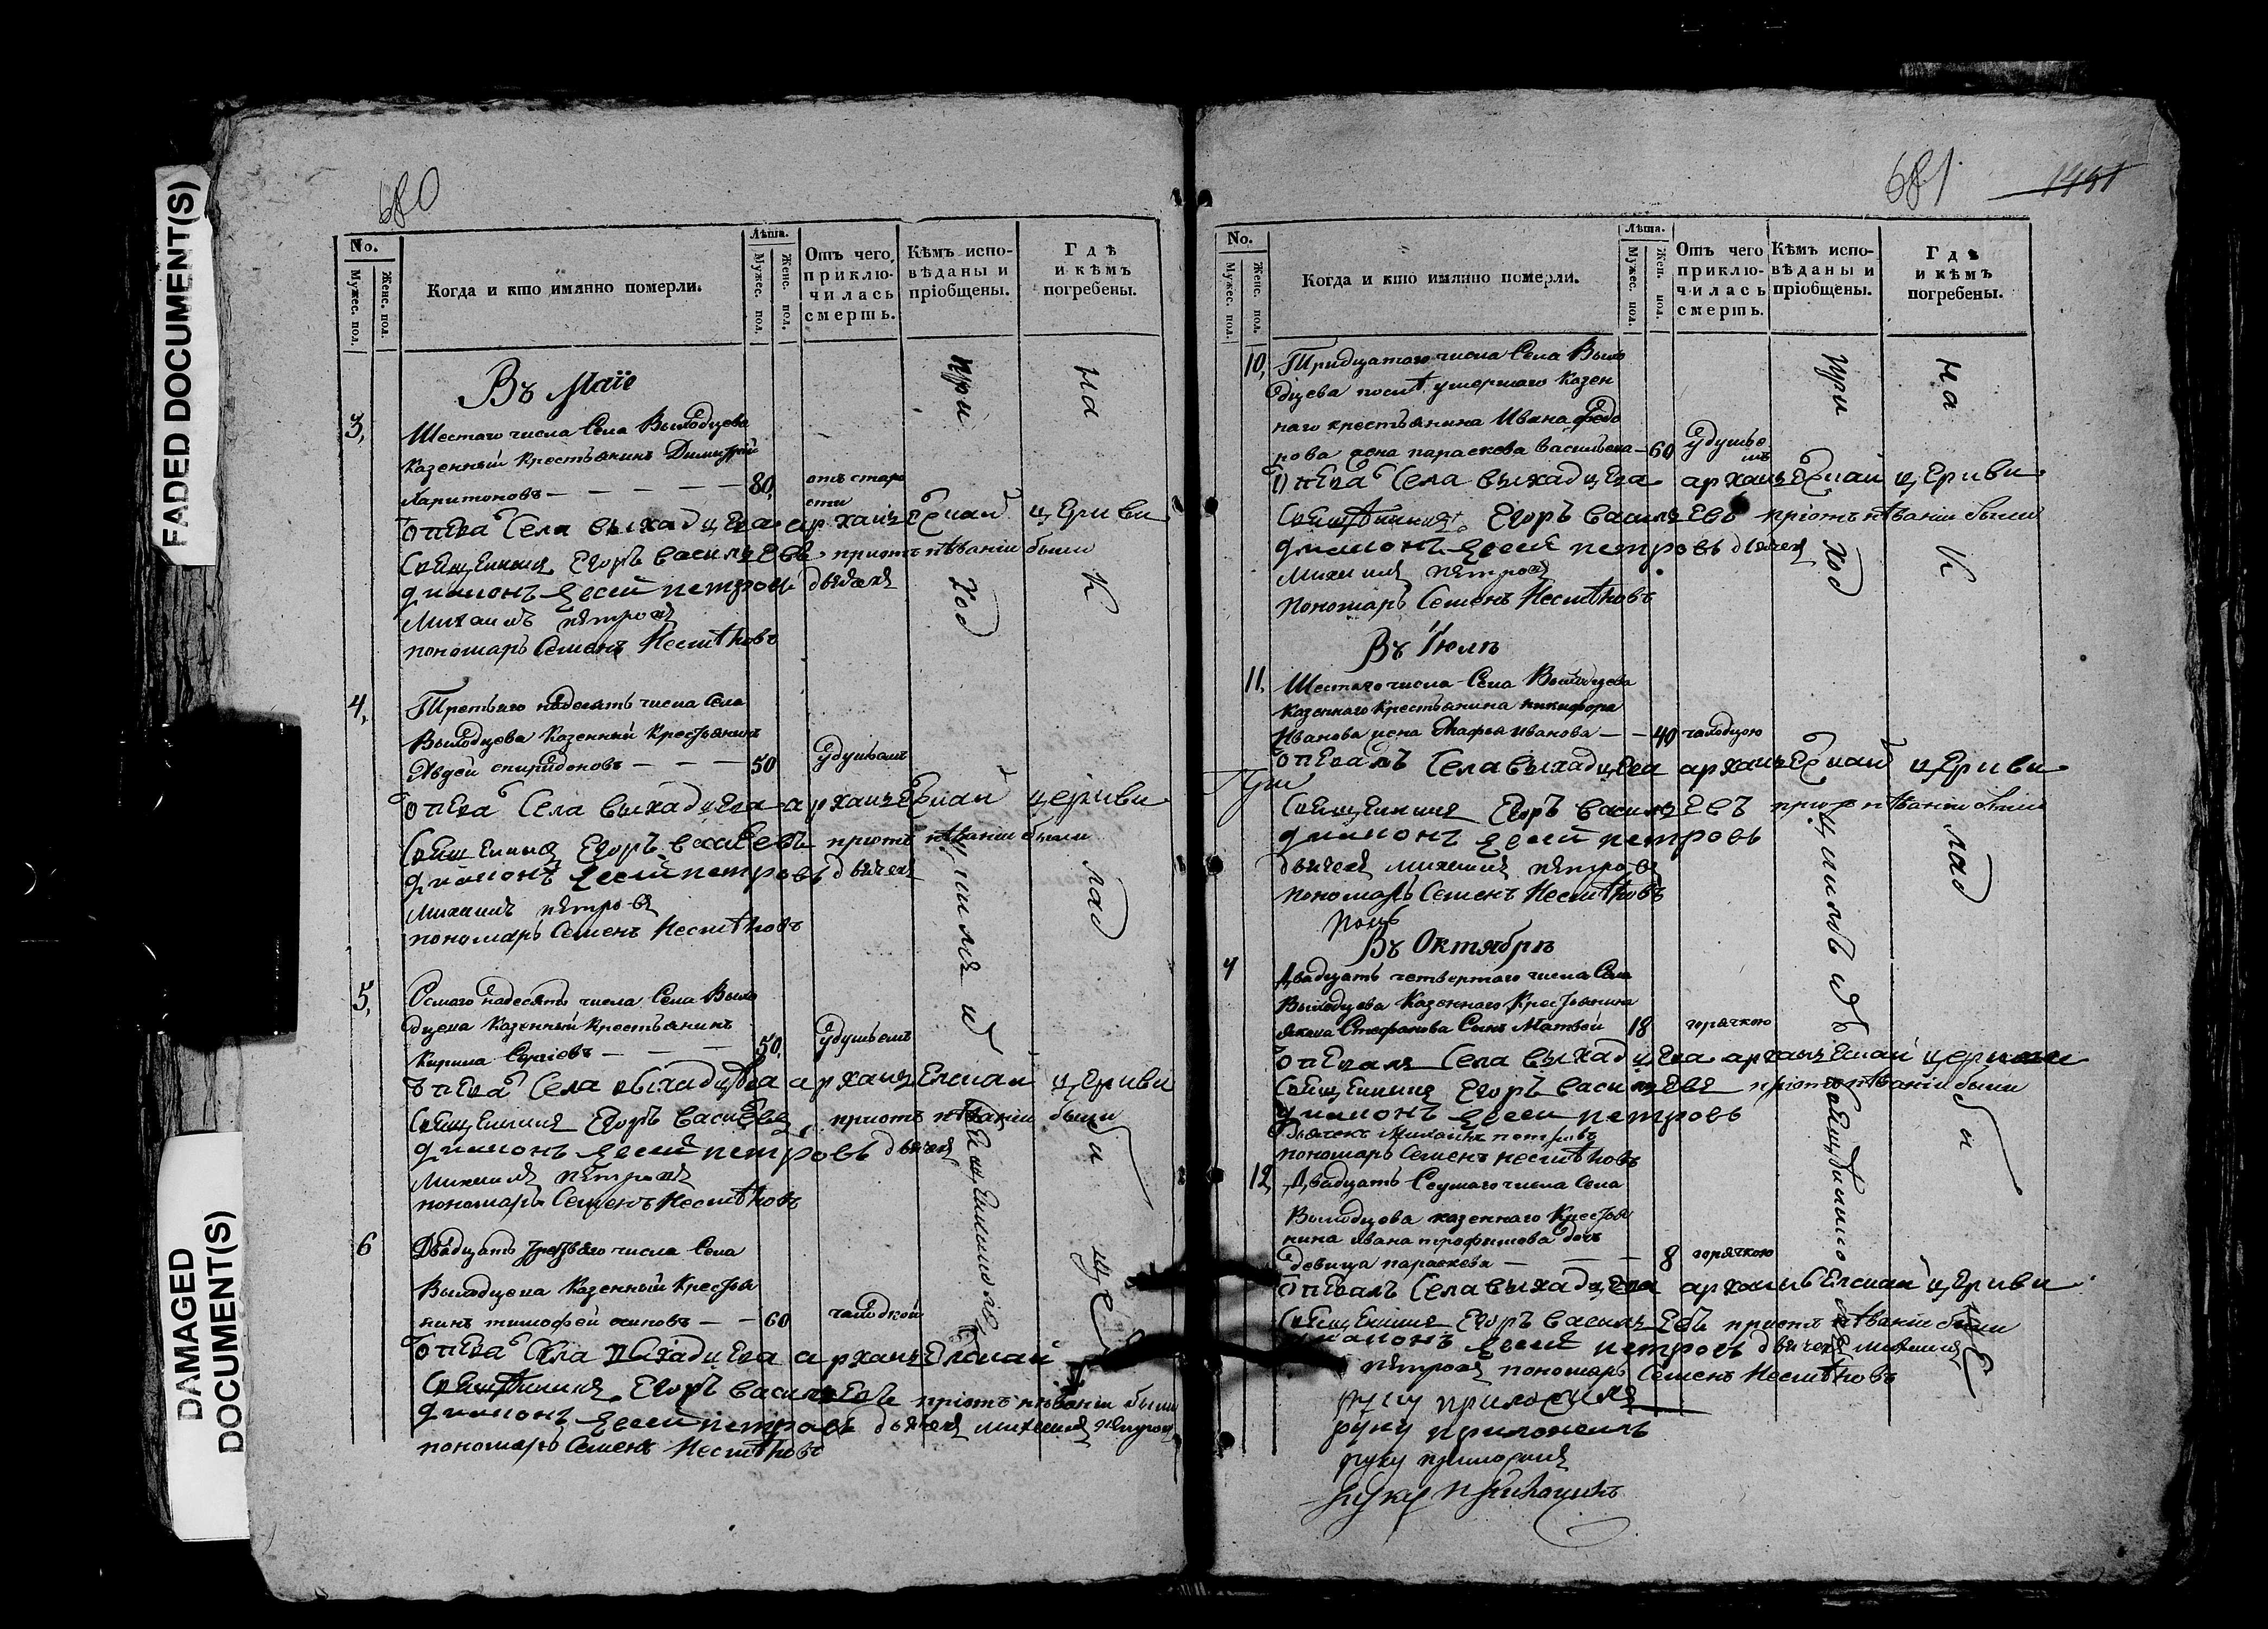 FADED DOCUMENT(S)
DAMAGED
DOCUMENT(S)
680
No.
Мужес. пол.
Женс. пол.
Когда и кто имянно померли.
Лѣта.
Мужес. пол.
Женс. пол.
Отъ чего
приклю-
чилась
смерть.
Кѣмъ испо-
вѣданы и
пріобщены.
Гдѣ
и кѣмъ
погребены.
Въ Маіе
3, Шестаго числа Села Выходцева
Казенный Крестьянинъ Димитрій
Харитоновъ — 80, отъ старо
сти
отпева Села выхадцева архангелскай церкви
Священникъ Егоръ васильевъ приотпѣваніи были
диаконъ петровъ дьячекъ
Михаилъ петровъ
пономарь Семенъ Несмѣховъ
4, Третьяго надесять числа Села
Выходцева Казенный Крестьянинъ
Авдей спиридоновъ — 50 удушьемъ
отпева Села выхадцева архангелскай церкви
Священникъ Егоръ приотпѣваніи были
диаконъ петровъ дьячекъ
Михаилъ петровъ
пономарь Семенъ Несмѣховъ
5, Осмаго надесять числа Села Выхо
дцева Казенный Крестьянинъ
Кирила Сергіевъ — 50, удушьемъ
отпева Села выхадцева архангелскай церкви
Священникъ Егоръ приотпѣваніи были
диаконъ петровъ дьячекъ
Михаилъ петровъ
пономарь Семенъ Несмѣховъ
6 Двадцать третьяго числа Села
Выходцева Казенный Крестья
нинъ тимофей осиповъ — 60 чаходкой
отпева Села архангелскай
Священникъ Егоръ васильевъ приотпѣваніи были
диаконъ петровъ дьячекъ михаилъ петровъ
пономарь Семенъ Несмѣховъ
при
ход
священникомъ
на
к
лад
би
ще
681
1441
No.
Мужес. пол.
Женс. пол.
Когда и кто имянно померли.
Лѣта.
Мужес. пол.
Жен. пол.
Отъ чего
приклю-
чилась
смерть.
Кѣмъ испо-
вѣданы и
пріобщены.
Гдѣ
и кѣмъ
погребены.
10, Тридцатаго числа Села Выхо
дцева послѣ умершаго Казен
наго крестьянина Ивана федо
рова жена параскева васильева — 60 удушье
мъ
отпева Села выхадцева архангелскай церкви
Священникъ Егоръ васильевъ приотпѣваніи были
диаконъ петровъ дьячекъ
михаилъ петровъ
пономарь Семенъ Несмѣховъ
Въ Іюлѣ
11, Шестаго числа Села Выходцева
Казеннаго Крестьянина никифора
Иванова жена Агафья иванова — 40 чаходкою
отпевалъ Села выхадцева архангелскай церкви
Священникъ Егоръ васильевъ приотпѣваніи были
диаконъ петровъ
дьячекъ михаилъ петровъ
пономарь Семенъ Несмѣховъ
Въ Октябрѣ
7 Двадцать четвертаго числа Села
Выходцева Казеннаго Крестьянина
якова Стефанова Сынъ Матвей 18 горячкою
отпевалъ Села выхадцева архангелскай церкви
Священникъ Егоръ васильевъ приотпѣваніи были
диаконъ петровъ
дьячекъ Михаилъ петровъ
пономарь Семенъ несмѣховъ
12, Двадцать Седмаго числа Села
Выходцова казеннаго Крестья
нина ивана трофимова дочь
девица параскева — 8 горячкою
отпевалъ Села выхадцева архангелскай церкви
Священникъ Егоръ васильевъ приотпѣваніи были
диаконъ петровъ дьячекъ михаилъ
петровъ пономарь Семенъ Несмѣховъ
руку приложилъ
руку приложилъ
руку приложилъ
руку приложилъ
при
ход
на
к
лад
би
ще